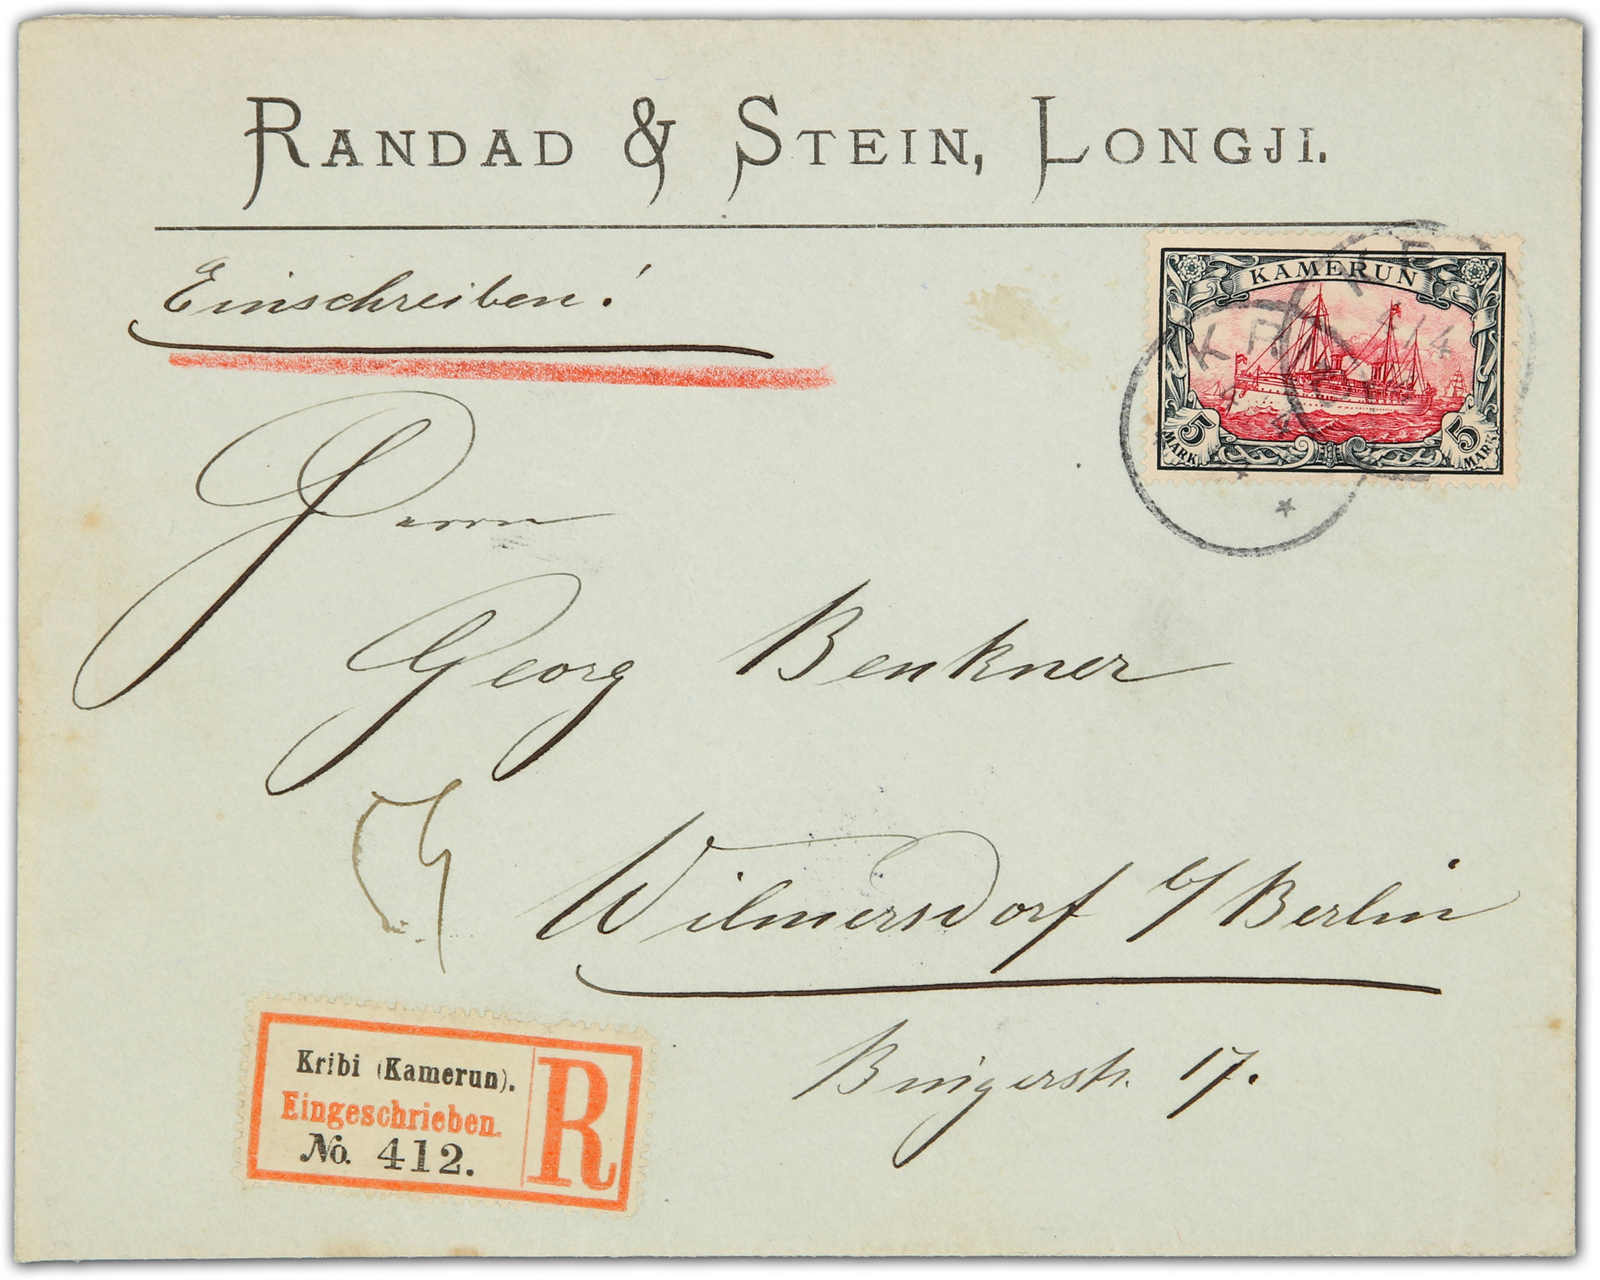 RANDAD & STEIN, LONGJI.
Einschreiben!
KAMERUN
5 MARK
5 MARK
Herrn
Georg Benkner
Wilmersdorf b/Berlin
Bingerstr. 17.
Kribi (Kamerun).
Eingeschrieben.
No. 412.
R